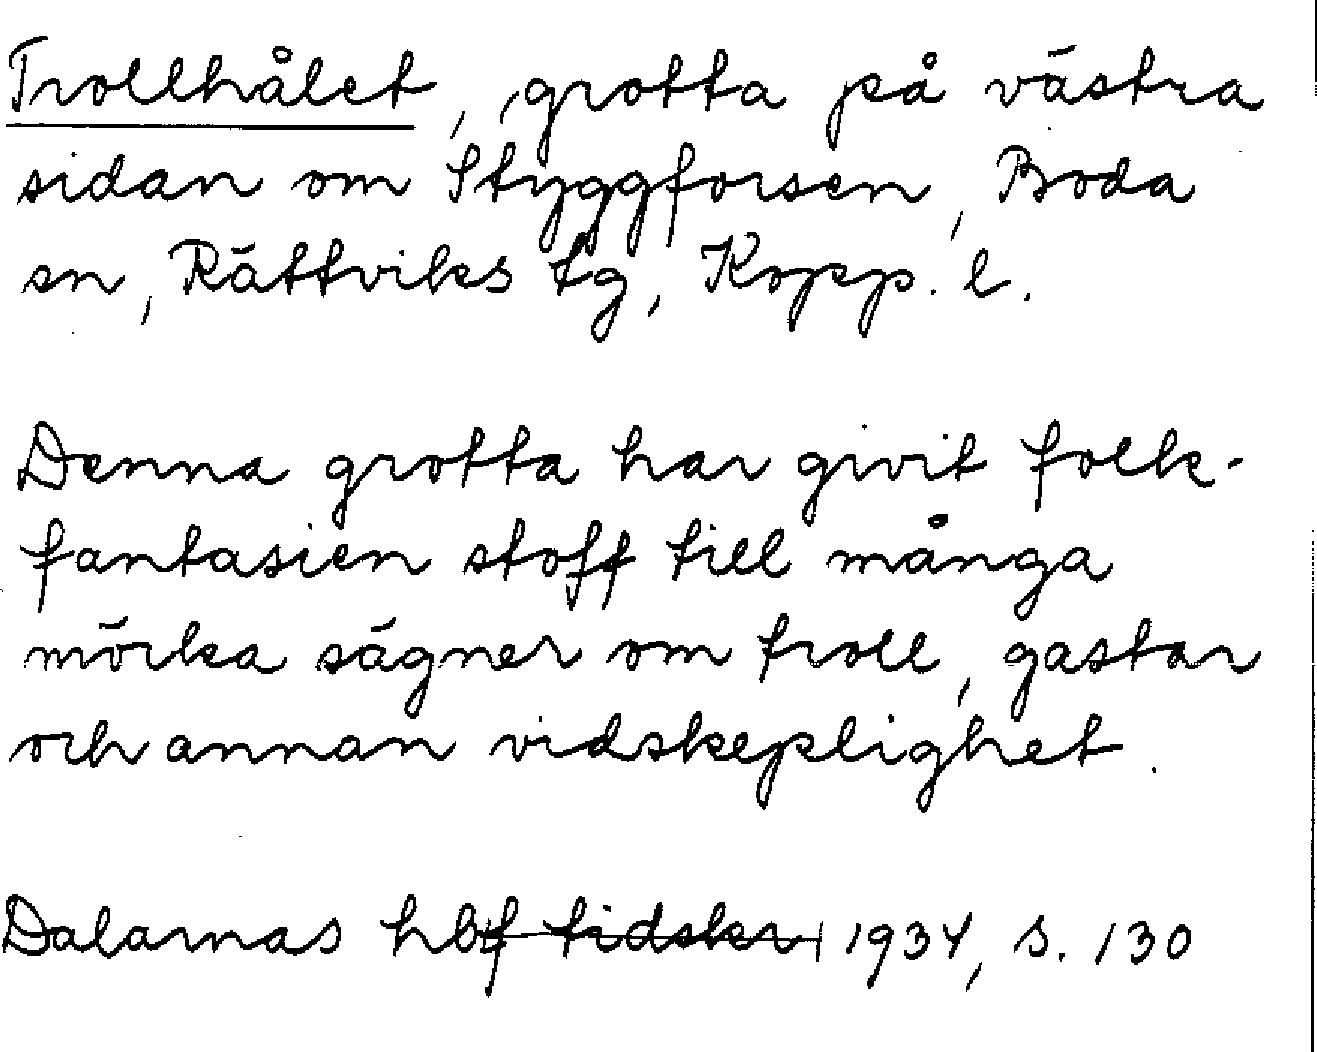 Trollhålet, grotta på västra
sidan om Styggforsen, Boda
sn, Rättviks tg, Kopp. l.
Denna grotta har givit folk-
fantasien stoff till många
mörka sägner om troll, gastar
och annan vidskeplighet.
Dalarnas hbf tidskr 1934, s. 130